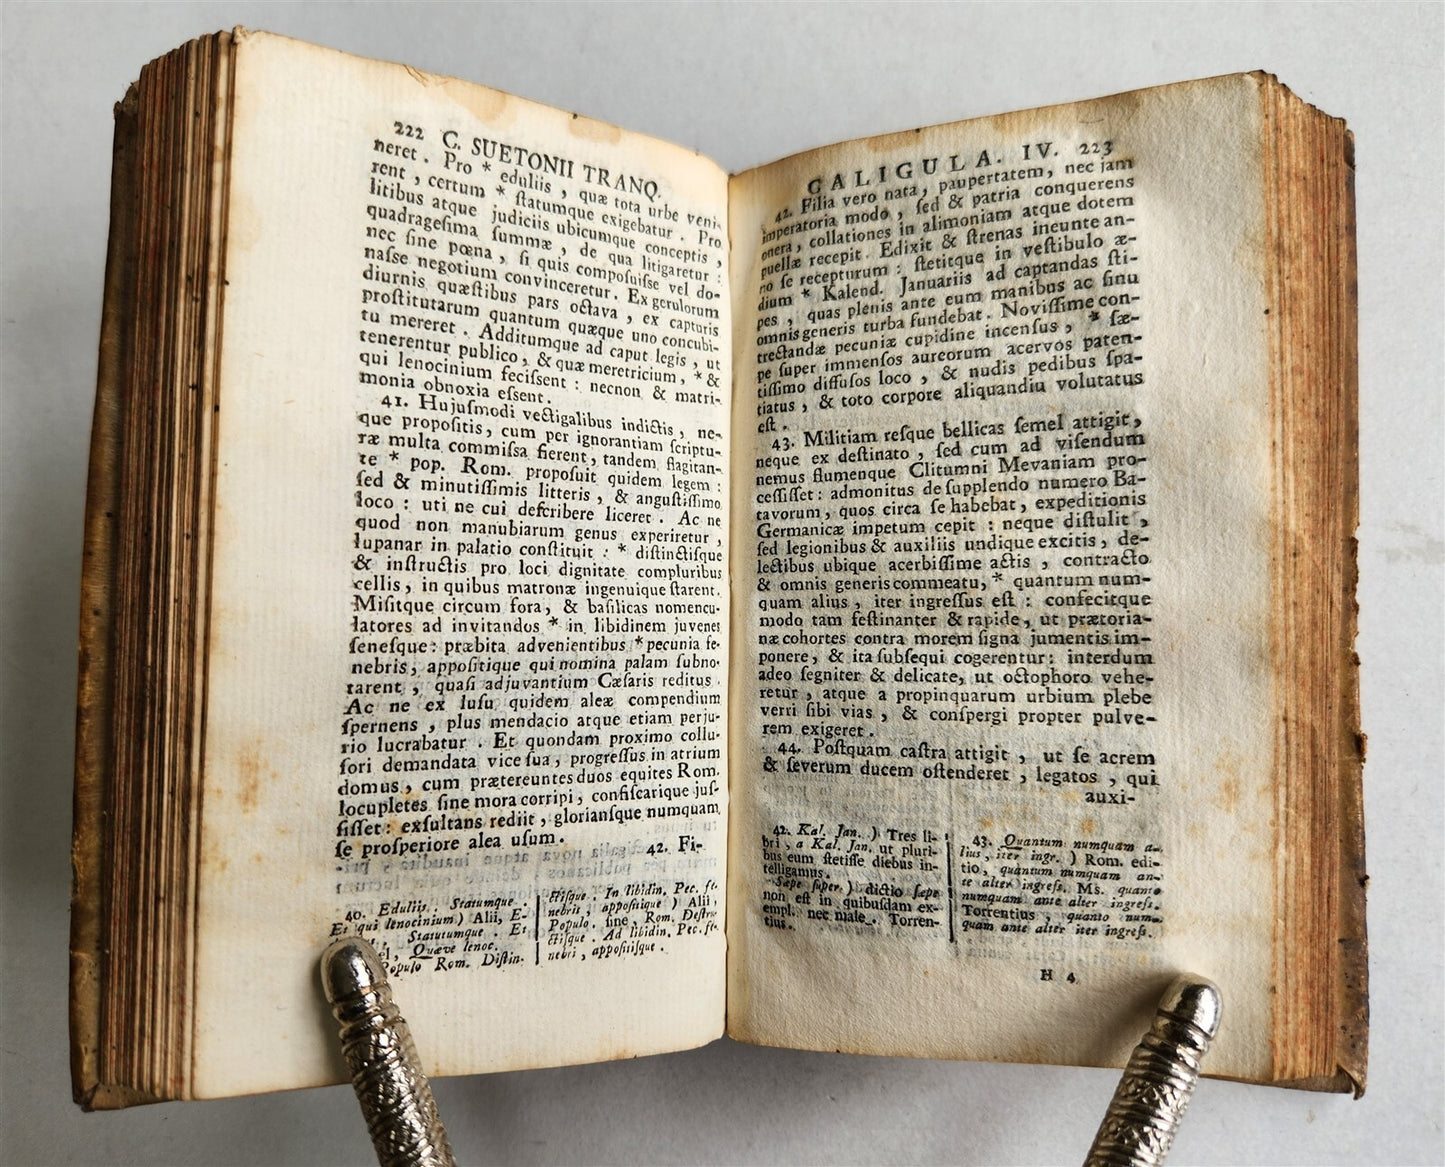 222 C. SUETONII TRANQ.
neret. Pro * eduliis, quæ tota urbe veni-
rent, certum * ſtatumque exigebatur. Pro
litibus atque judiciis ubicumque conceptis,
quadrageſima ſummæ, de qua litigaretur:
nec ſine pœna, ſi quis compoſuiſſe vel do-
naſſe negotium convinceretur. Ex gerulorum
diurnis quæſtibus pars octava, ex capturis
proſtitutarum quantum quæque uno concubi-
tu mereret. Additumque ad caput legis, ut
tenerentur publico, & quæ meretricium, * &
qui lenocinium feciſſent: necnon & matri-
monia obnoxia eſſent.
41. Hujuſmodi vectigalibus indictis, ne-
que propoſitis, cum per ignorantiam ſcriptu-
ræ multa commiſſa fierent, tandem flagitan-
te * pop. Rom. propoſuit quidem legem:
ſed & minutiſſimis litteris, & anguſtiſſimo
loco: uti ne cui deſcribere liceret. Ac ne
quod non manubiarum genus experiretur,
lupanar in palatio conſtituit: * diſtinctiſque
& inſtructis pro loci dignitate compluribus
cellis, in quibus matronæ ingenuique ſtarent.
Miſitque circum fora, & baſilicas nomencu-
latores ad invitandos * in libidinem juvenes
ſeneſque: præbita advenientibus * pecunia fe-
nebris, appoſitique qui nomina palam ſubno-
tarent, quaſi adjuvantium Cæſaris reditus.
Ac ne ex luſu quidem aleæ compendium
ſpernens, plus mendacio atque etiam perju-
rio lucrabatur. Et quondam proximo collu-
ſori demandata vice ſua, progreſſus in atrium
domus, cum prætereuntes duos equites Rom.
locupletes ſine mora corripi, confiſcarique juſ-
ſiſſet: exſultans rediit, glorianſque numquam
ſe proſperiore alea uſum.
42. Fi-
40. Eduliis. Statumque.
Et qui lenocinium) Alii, E-
Statutumque. Et
el, Quæve lenoc.
Populo Rom. Diſtin-
ctiſque. In libidin. Pec. fe-
nebris, appoſitique) Alii,
Populo. ſine, Rom. Deſtru-
ctiſque. Ad libidin. Pec. fe-
nebri, appoſitiſque.
CALIGULA. IV. 223
42. Filia vero nata, paupertatem, nec jam
imperatoria modo, ſed & patria conquerens
onera, collationes in alimoniam atque dotem
puellæ recepit. Edixit & ſtrenas ineunte an-
no ſe recepturum: ſtetitque in veſtibulo æ-
dium * Kalend. Januariis ad captandas ſti-
pes, quas plenis ante eum manibus ac ſinu
omnis generis turba fundebat. Noviſſime con-
trectandæ pecuniæ cupidine incenſus, * ſæ-
pe ſuper immenſos aureorum acervos paten-
tiſſimo diffuſos loco, & nudis pedibus ſpa-
tiatus, & toto corpore aliquandiu volutatus
eſt.
43. Militiam reſque bellicas ſemel attigit,
neque ex deſtinato, ſed cum ad viſendum
nemus flumenque Clitumni Mevaniam pro-
ceſſiſſet: admonitus de ſupplendo numero Ba-
tavorum, quos circa ſe habebat, expeditionis
Germanicæ impetum cepit: neque diſtulit,
ſed legionibus & auxiliis undique excitis, de-
lectibus ubique acerbiſſime actis, contracto
& omnis generis commeatu, * quantum num-
quam alius, iter ingreſſus eſt: confecitque
modo tam feſtinanter & rapide, ut prætoria-
næ cohortes contra morem ſigna jumentis im-
ponere, & ita ſubſequi cogerentur: interdum
adeo ſegniter & delicate, ut octophoro vehe-
retur, atque a propinquarum urbium plebe
verri ſibi vias, & conſpergi propter pulve-
rem exigeret.
44. Poſtquam caſtra attigit, ut ſe acrem
& ſeverum ducem oſtenderet, legatos, qui
auxi-
42. Kal. Jan.) Tres li-
bri, a Kal. Jan. ut pluri-
bus eum ſtetiſſe diebus in-
telligamus.
Sæpe ſuper.) dictio ſæpe
non eſt in quibuſdam ex-
empl. nec male. Torren-
tius.
43. Quantum numquam a-
lius, iter ingr.) Rom. edi-
tio, quantum numquam an-
te alter ingreſſ. Ms. quanto
numquam ante alter ingreſſ.
Torrentius, quanto num-
quam ante alter iter ingreſſ.
H 4